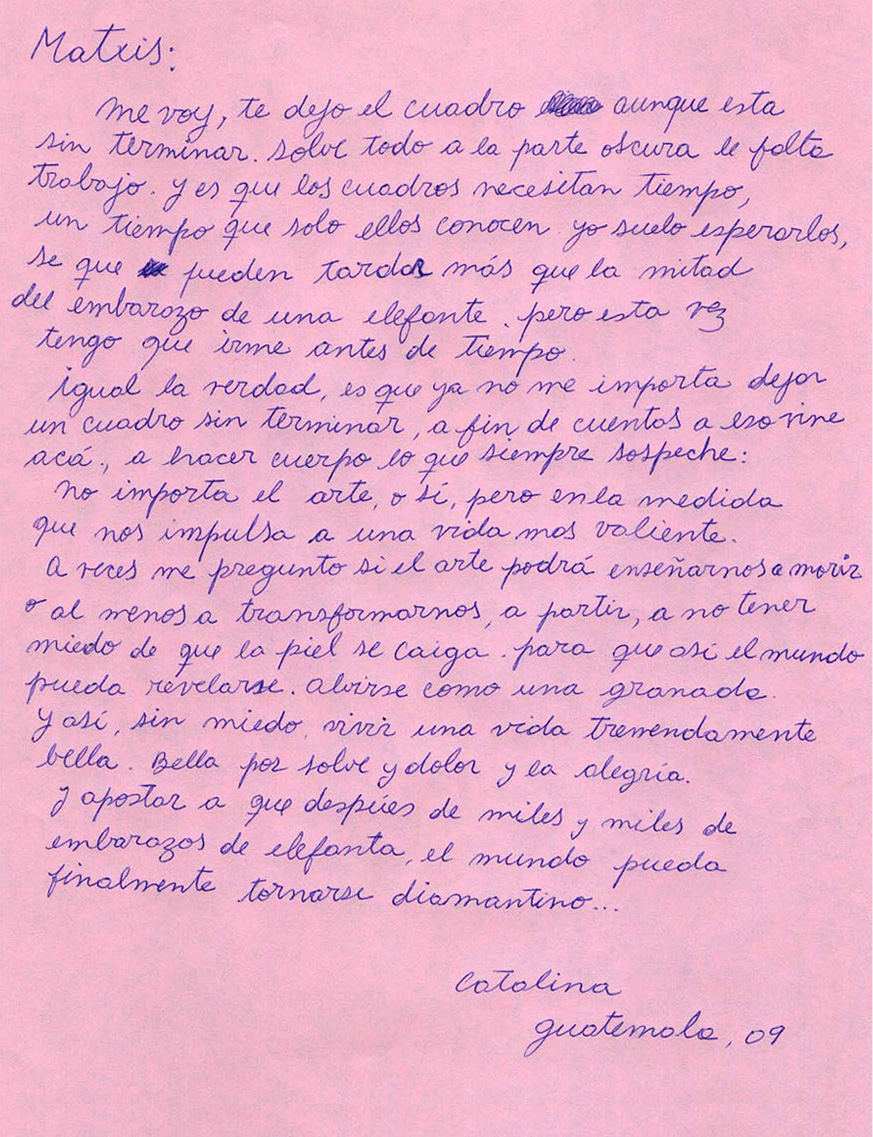 Matxis:
Me voy, te dejo el cuadro aunque esta
sin terminar. solve todo a la parte oscura le falta
trabajo. y es que los cuadros necesitan tiempo,
un tiempo que solo ellos conocen. yo suelo esperarlos,
se que pueden tardar más que la mitad
del embarazo de una elefante. pero esta vez
tengo que irme antes de tiempo.
igual la verdad, es que ya no me importa dejar
un cuadro sin terminar, a fin de cuentas a eso vine
acá., a hacer cuerpo lo que siempre sospeche:
no importa el arte, o sí, pero en la medida
que nos impulsa a una vida mas valiente.
A veces me pregunto si el arte podrá enseñarnos a morir
o al menos a transformarnos, a partir, a no tener
miedo de que la piel se caiga. para que así el mundo
pueda revelarse. abrirse como una granada.
Y así, sin miedo, vivir una vida tremendamente
bella. Bella por solve y dolor y la alegría.
y apostar a que despúes de miles y miles de
embarazos de elefanta, el mundo pueda
finalmente tornarse diamantino...
Catalina
guatemala, 09